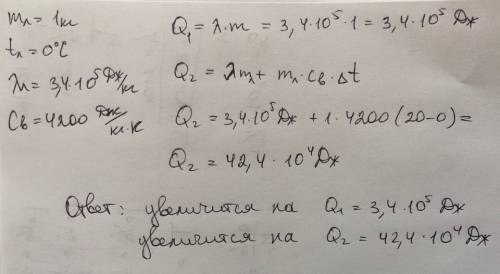 mл = 1кг
tл = 0°C
λл = 3,4·10⁵ Дж/кг
Cв = 4200 Дж/кг·К
Q₁ = λ·m = 3,4·10⁵·1 = 3,4·10⁵ Дж
Q₂ = λmл + mл·cв·Δt
Q₂ = 3,4·10⁵ Дж + 1·4200 (20-0) =
Q₂ = 42,4·10⁴ Дж
Ответ: увеличится на Q₁ = 3,4·10⁵ Дж
увеличится на Q₂ = 42,4·10⁴ Дж